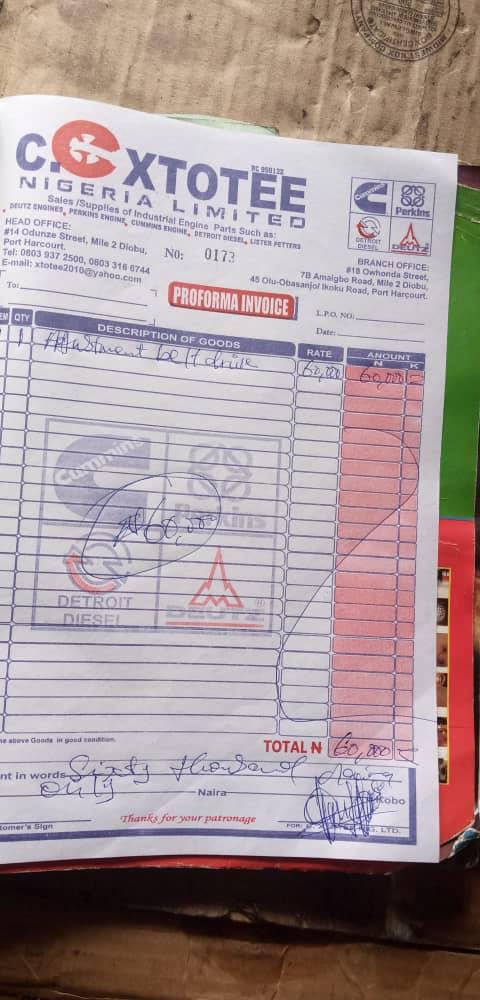 C. XTOTEE
RC 950132
NIGERIA LIMITED
Sales /Supplies of Industrial Engine Parts Such as:
DEUTZ ENGINES, PERKINS ENGINE, CUMMINS ENGINE, DETROIT DIESEL, LISTER PETTERS
Cummins
Perkins
DETROIT DIESEL
DEUTZ
HEAD OFFICE:
#14 Odunze Street, Mile 2 Diobu,
Port Harcourt.
Tel: 0803 937 2500, 0803 316 6744
E-mail: xtotee2010@yahoo.com
No: 0173
BRANCH OFFICE:
#18 Owhonda Street,
7B Amaigbo Road, Mile 2 Diobu,
45 Olu-Obasanjo/ Ikoku Road, Port Harcourt.
To:
PROFORMA INVOICE
L.P.O. NO:
Date:
EM QTY DESCRIPTION OF GOODS RATE AMOUNT
N K
1 Adjustment belt drive 60,000 60,000 =
Cummins
Perkins
₦60,000
DETROIT
DIESEL
DEUTZ
he above Goods in good condition.
TOTAL ₦ 60,000 =
nt in words Sixty thousand naira
only
Naira
Kobo
tomer's Sign
Thanks for your patronage
FOR: NIG. LTD.